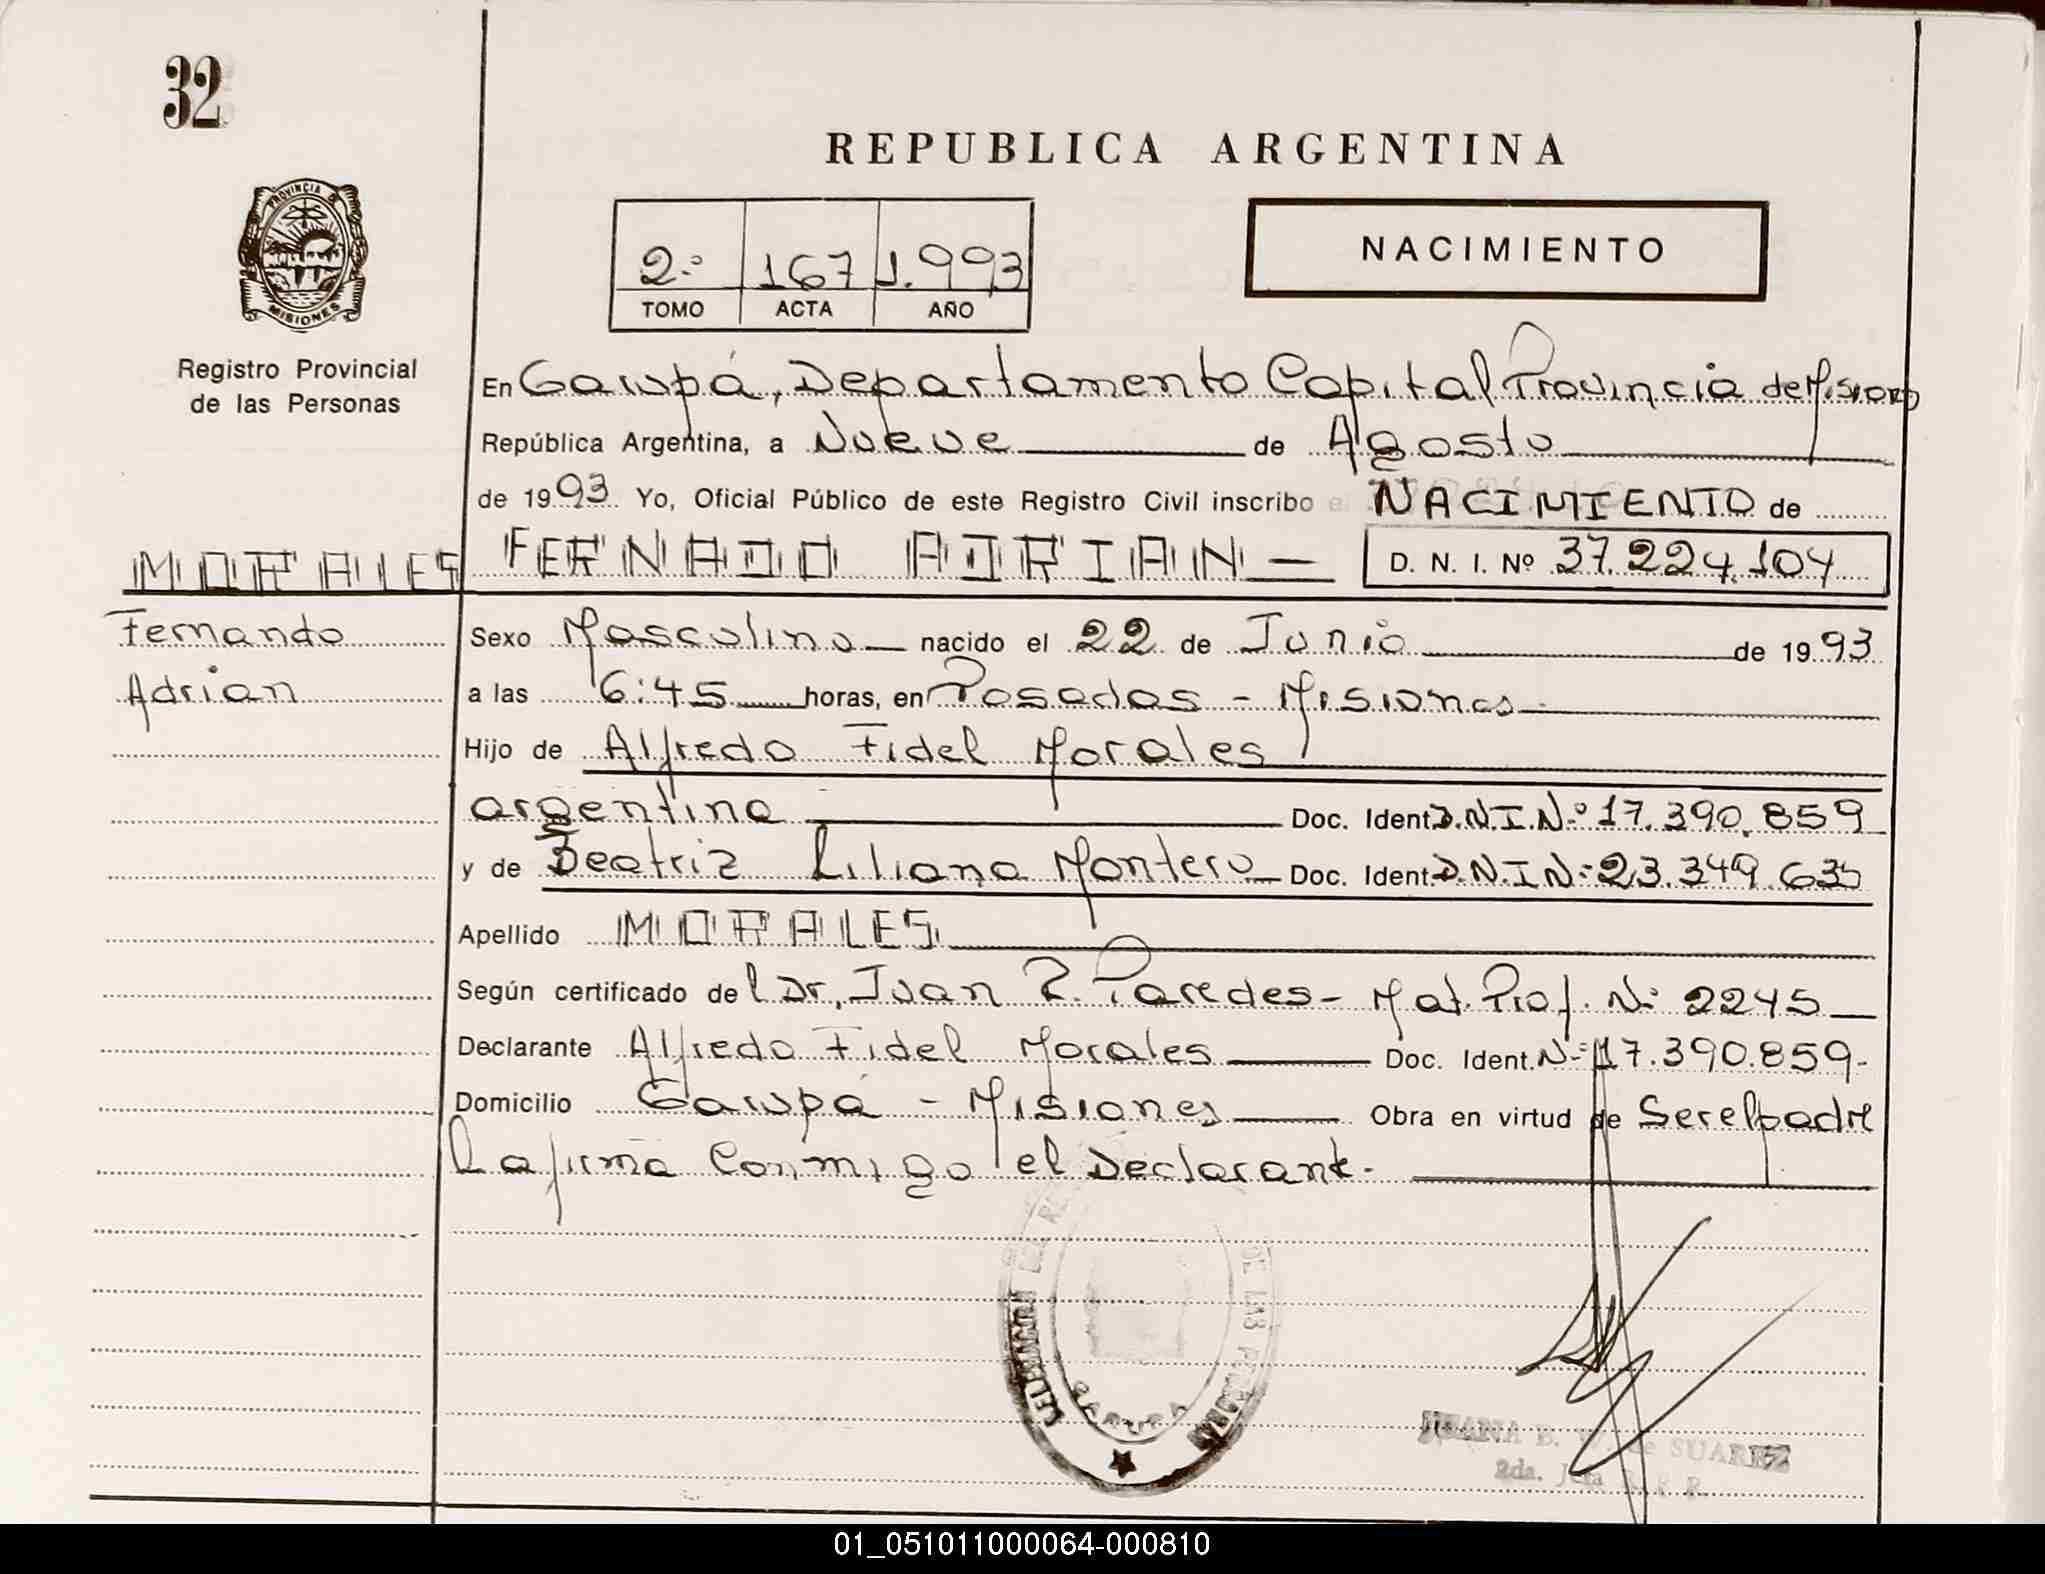 32
REPUBLICA ARGENTINA
PROVINCIA DE MISIONES
2.º 167 1.993
TOMO ACTA AÑO
NACIMIENTO
Registro Provincial
de las Personas
En Garupá, Departamento Capital Provincia de Misiones
República Argentina, a Nueve de Agosto
de 1993 Yo, Oficial Público de este Registro Civil inscribo el NACIMIENTO de
MORALES FERNADO ADRIAN D. N. I. Nº 37.224.104
Fernando
Adrian
Sexo Masculino nacido el 22 de Junio de 1993
a las 6:45 horas, en Posadas - Misiones
Hijo de Alfredo Fidel Morales
argentino Doc. Ident. D.N.I.N.º 17.390.859
y de Beatriz Liliana Montero Doc. Ident. D.N.I N.º 23.349.635
Apellido MORALES
Según certificado del Dr, Juan R. Paredes - Mat. Prof. Nº 2245
Declarante Alfredo Fidel Morales Doc. Ident. Nº 17.390.859-
Domicilio Garupá - Misiones Obra en virtud de Ser el padre
La firma Conmigo el Declarante.
DE LAS
GARUPA
JUANA B. W. de SUAREZ
2da. Jefa R. P. P.
01_051011000064-000810